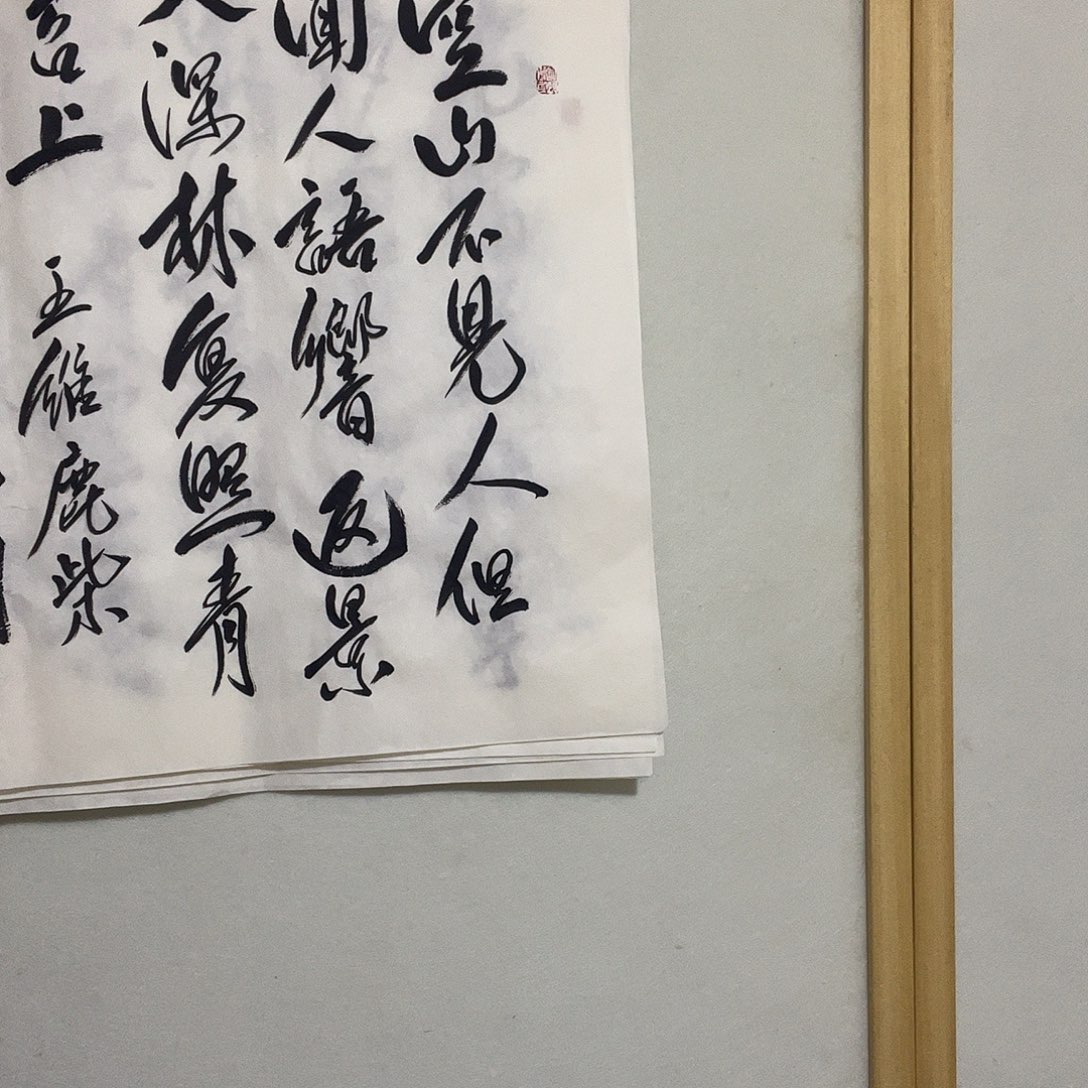 空山不見人但
聞人語響返景
入深林复照青
苔上
王維鹿柴